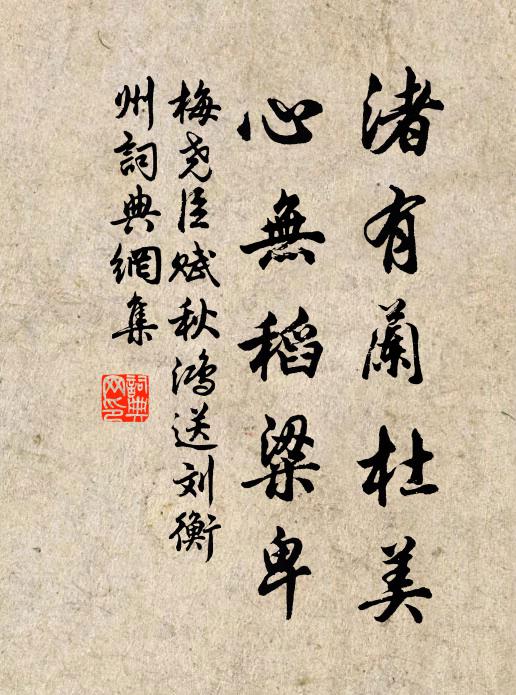 渚有蘭杜美
心無稻粱卑
梅尧臣赋秋鸿送刘衡
州詞典網集
詞典
网印